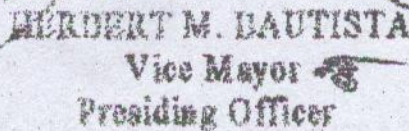 HERBERT M. BAUTISTA
Vice Mayor
Presiding Officer